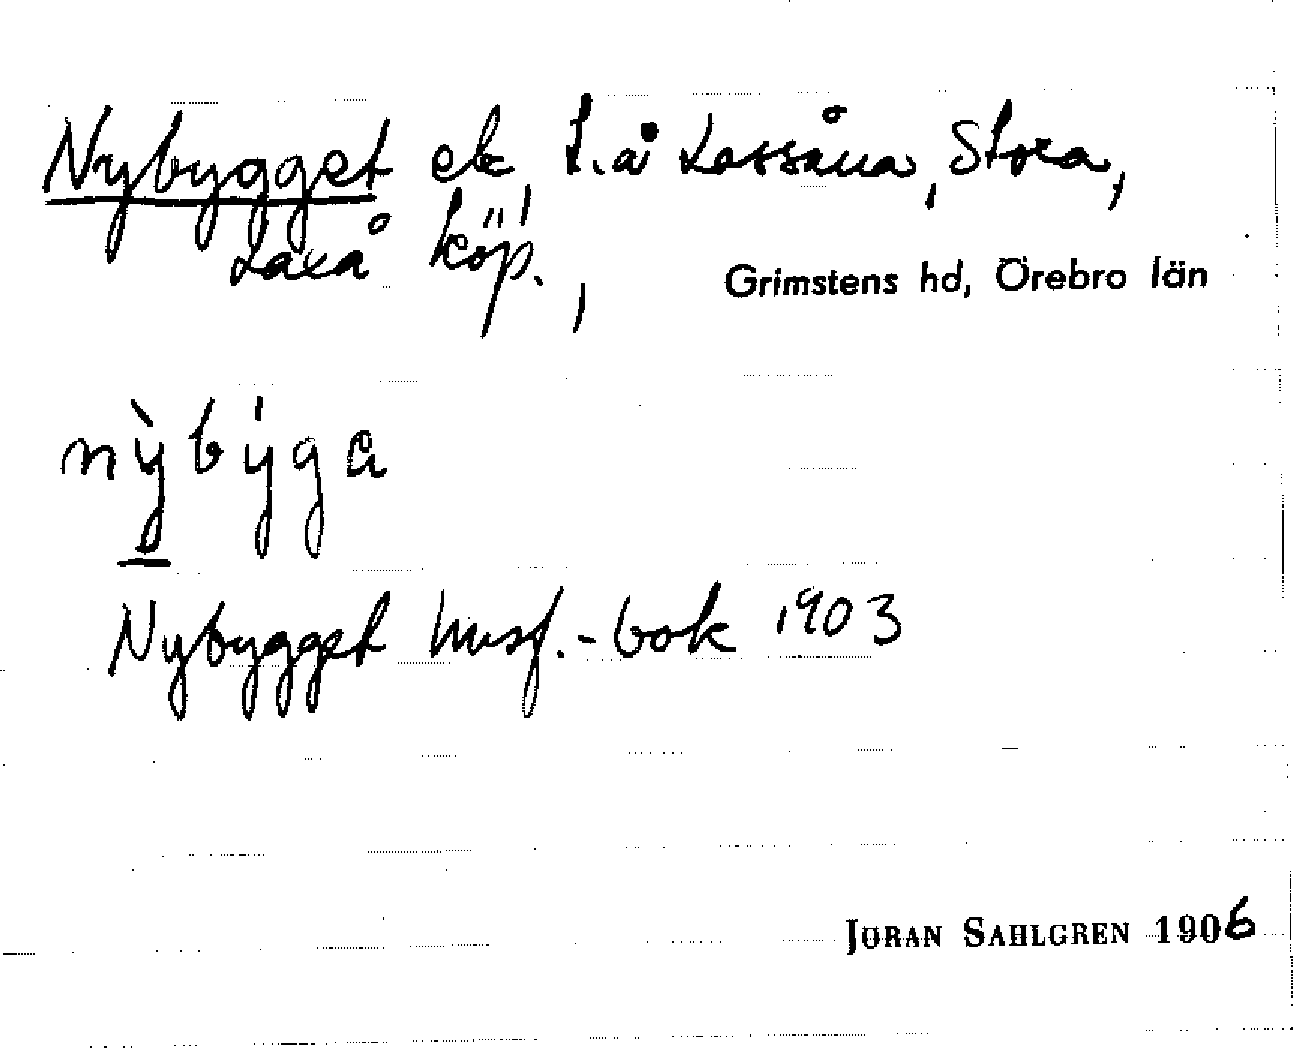 Nybygget ek, l. å Lassåna, Stora,
Laxå köp.,
Grimstens hd, Örebro län
nỳbýga
Nybygget husf.-bok 1903
JÖRAN SAHLGREN 1906